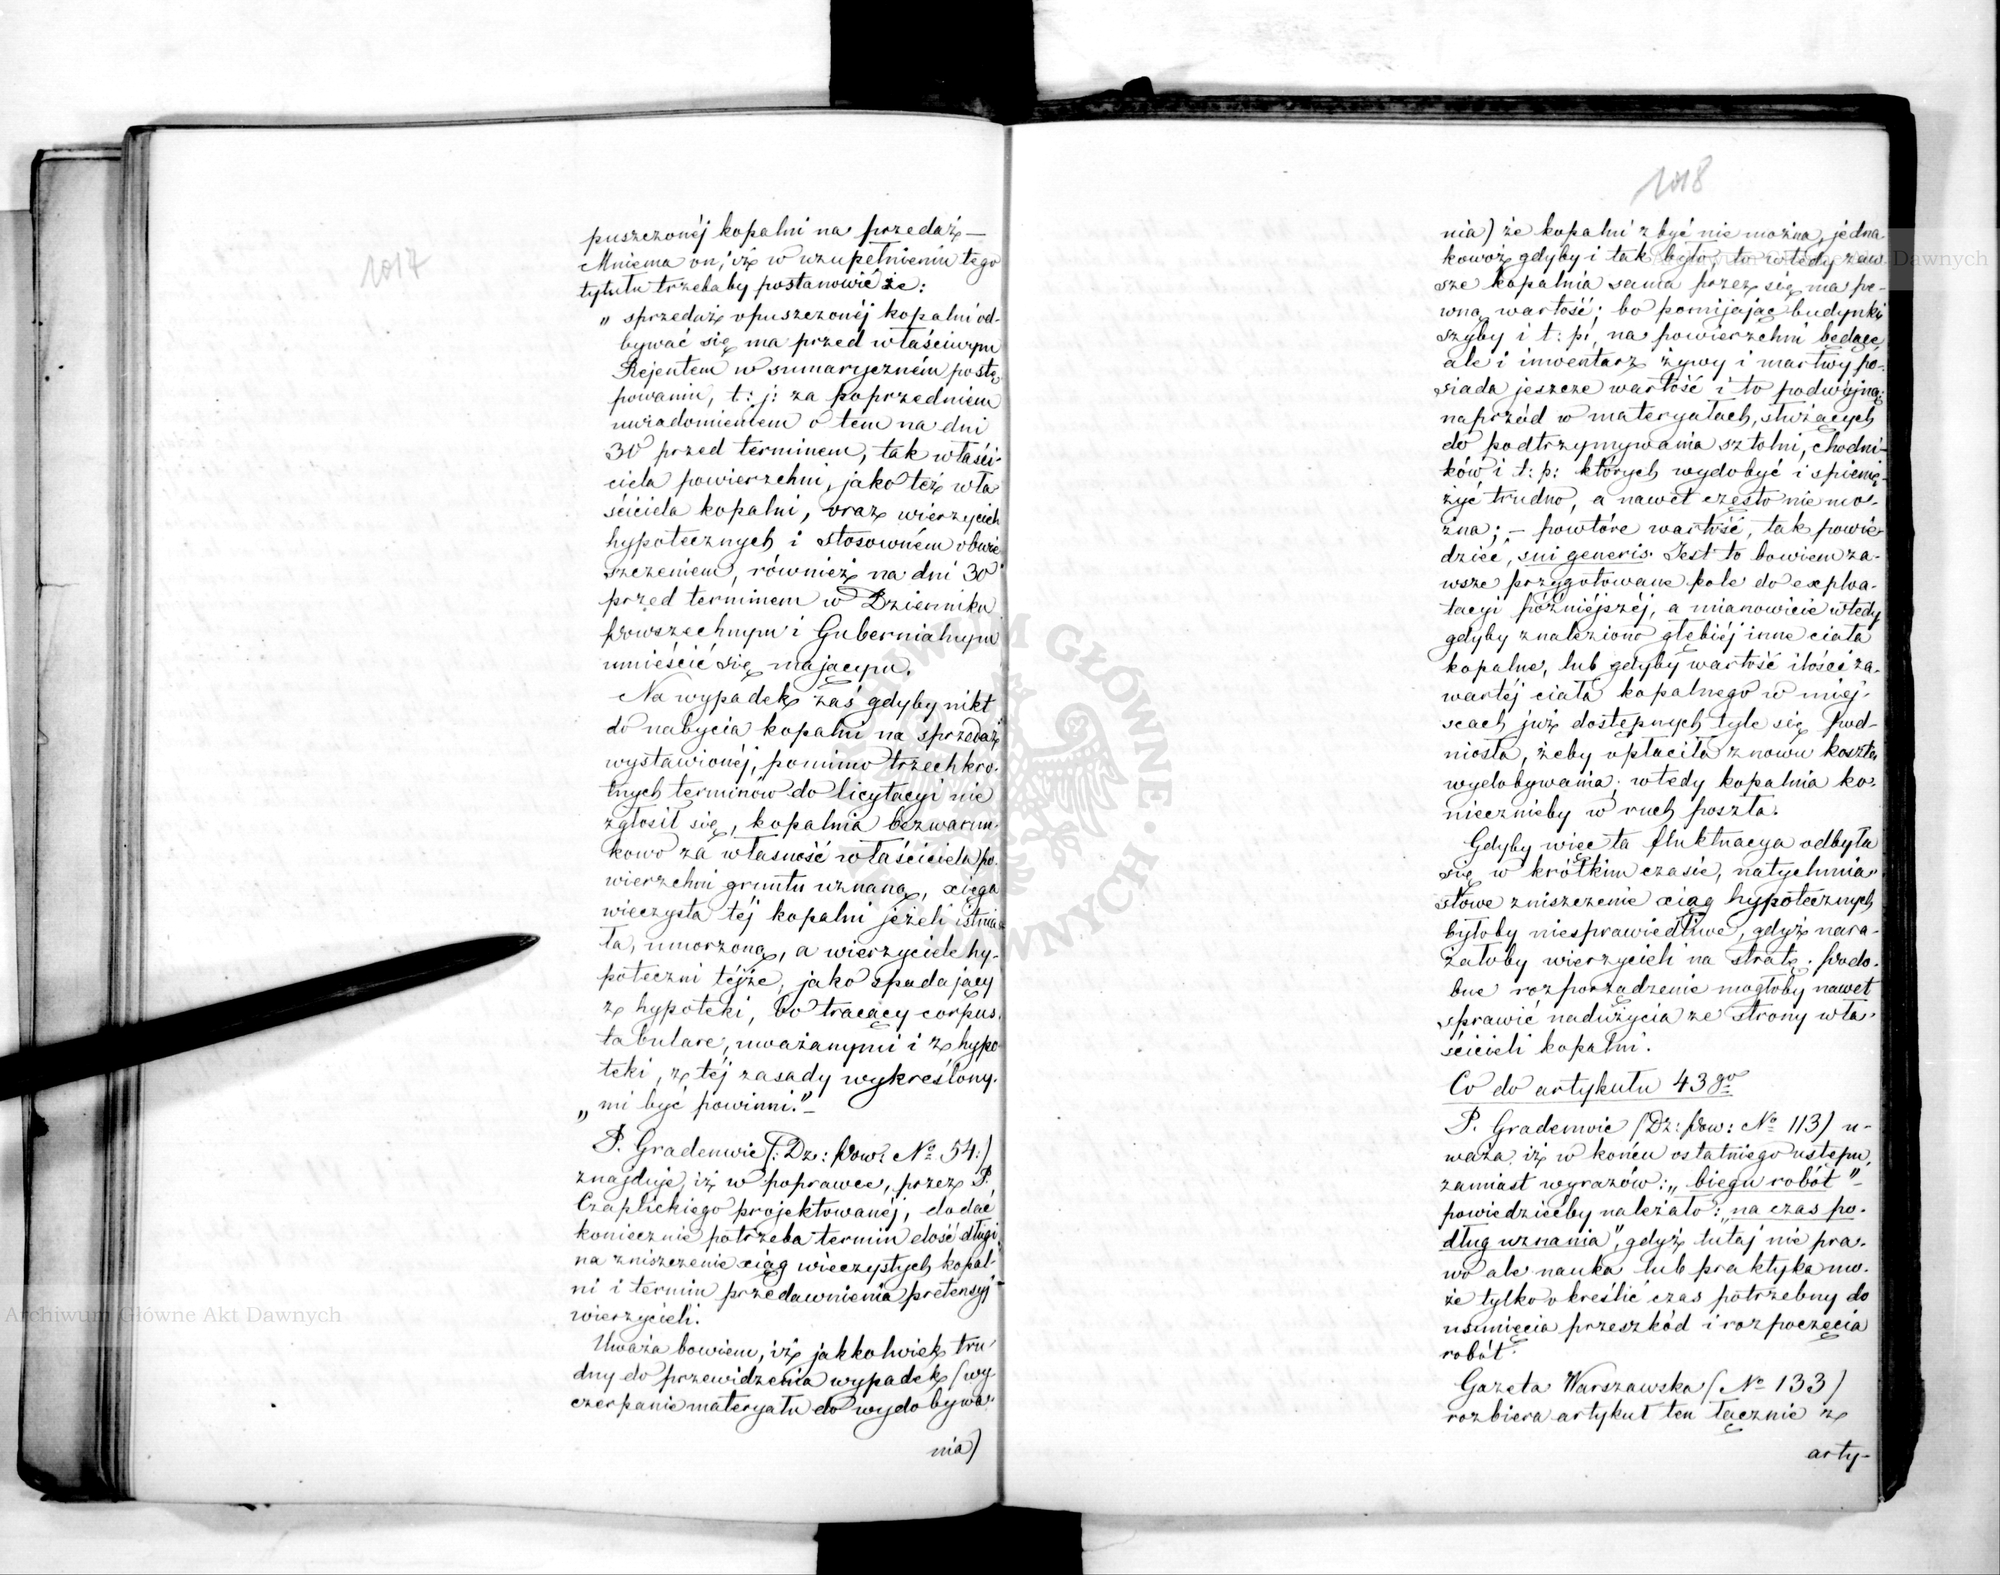 1017
puszczonéj kopalni na przedaż —
Mniema on, iż w uzupełnieniu tego
tytułu trzebaby postanowić że:
„ sprzedaż opuszczonéj kopalni od-
bywać się ma przed właściwym
Rejentem w sumaryczném postę-
powaniu, t: j: za poprzedniem
uwiadomieniem o tem na dni
30 przed terminem, tak właści-
ciela powierzchni, jako też wła
ściciela kopalni, oraz wierzycieli
hypotecznych i stosowném obwie
szczeniem, również na dni 30
przed terminem w Dzienniku
powszechnym i Gubernialnym
umieścić się mającym.
Na wypadek zaś gdyby nikt
do nabycia kopalni na sprzedaż
wystawionéj, pomimo trzechkro-
tnych terminów do licytacyi nie
zgłosił się, kopalnia bezwarun-
kowo za własność właściciela po-
wierzchni gruntu uznaną, xięga
wieczysta téj kopalni jeżeli istnia-
ła, umorzoną, a wierzyciele hy-
poteczni téjże, jako spadający
z hypoteki, bo tracący corpus
tabulare, uważanymi i z hypo
teki, z téj zasady wykreślony-
„ mi być powinni.” —
P. Gradenwic (: Dz: Pow: № 54:)
znajduje, iż w poprawce, przez P.
Czaplickiego projektowanéj, dodać
koniecznie potrzeba termin dość długi
na zniszczenie xiąg wieczystych kopal-
ni i termin przedawnienia pretensyj
wierzycieli.
Uważa bowiem, iż jakkolwiek tru
dny do przewidzenia wypadek (wy
czerpanie materyału do wydobywa-
nia)
1018
nia) że kopalni zbyć nie można, jedna-
kowoż gdyby i tak było, to wtedy zaw
sze kopalnia sama przez się ma pe-
wną wartość; bo pomijając budynki
szyby i t: p:, na powierzchni będące,
ale i inwentarz żywy i martwy po-
siada jeszcze wartość i to podwójną:
naprzód w materyałach, służących
do podtrzymywania sztolni, chodni-
ków i t: p: których wydobyć i spienię-
żyć trudno, a nawet często nie mo-
żna; — powtóre wartość, tak powie-
dzieć, sui generis. Jest to bowiem za-
wsze przygotowane pole do exploa-
tacyi późniejszéj, a mianowicie wtedy
gdyby znaleziono głębiéj inne ciała
kopalne, lub gdyby wartość ilości za-
wartéj ciała kopalnego w miej-
scach już dostępnych tyle się pod-
niosła, żeby opłaciła znowu koszta
wydobywania; wtedy kopalnia ko-
niecznieby w ruch poszła.
Gdyby więc ta fluktuacya odbyła
się w krótkim czasie, natychmia-
stowe zniszczenie xiąg hypotecznych
byłoby niesprawiedliwe, gdyż nara-
żałoby wierzycieli na stratę; podo-
bne rozporządzenie mogłoby nawet
sprawić nadużycia ze strony wła-
ścicieli kopalni.
Co do artykułu 43go
P. Gradenwic (Dz: Pow: № 113) u-
waża, iż w końcu ostatniego ustępu,
zamiast wyrazów: „biegu robót” —
powiedziećby należało: „na czas po-
dług uznania”, gdyż tutaj nie pra-
wo ale nauka lub praktyka mo-
że tylko określić czas potrzebny do
usunięcia przeszkód i rozpoczęcia
robót.
Gazeta Warszawska (№ 133)
rozbiera artykuł ten łącznie z
arty-
Archiwum Główne Akt Dawnych
Archiwum Główne Akt Dawnych
ARCHIWUM GŁÓWNE AKT DAWNYCH